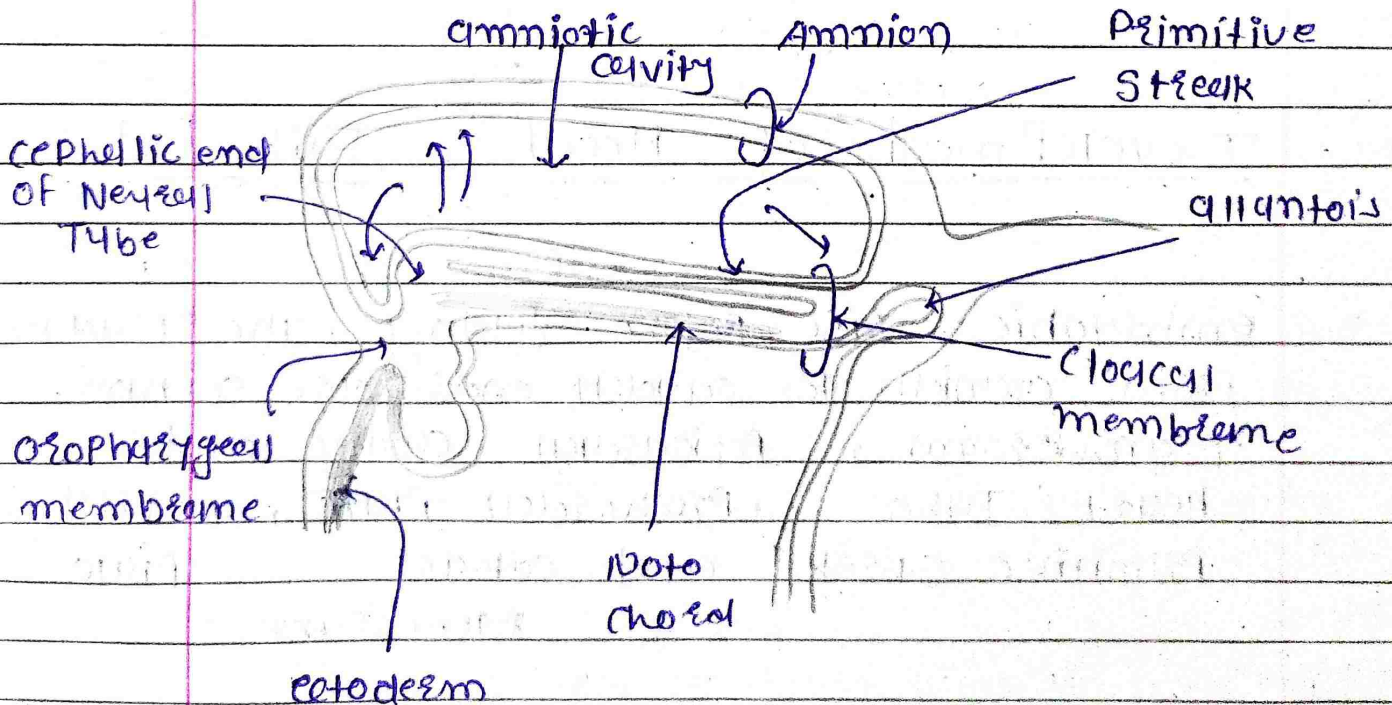 amniotic
cavity
Amnion
Primitive
Streak
cephellic end
of Neural
Tube
allantois
Cloacal
membrame
oropharygeal
membrame
Noto
chord
ectoderm